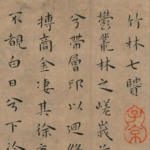 竹林七賢
鬱叢林之嵯峨
兮帶層邱以迴
搏商金淒其徐
不覩白日兮下